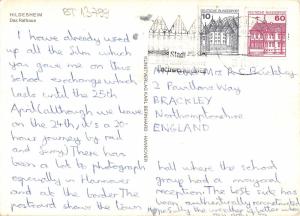 HILDESHEIM
Das Rathaus
I have already used
up all the film which
you gave me on this
school exchange which
lasts until the 25th
April (although we leave
on the 24th, it's a 20-
hour journey by rail
and ferry) There has
been a lot to photograph
especially in Hanover
and at the border. The
postcard shows the town
hall where the school
group had a mayoral
reception. The
has
been authentically
DEUTSCHE BUNDESPOST
10
DEUTSCHE BUNDESPOST
60
Mrs P
2 Pavillons Way
BRACKLEY
Northamptonshire
ENGLAND